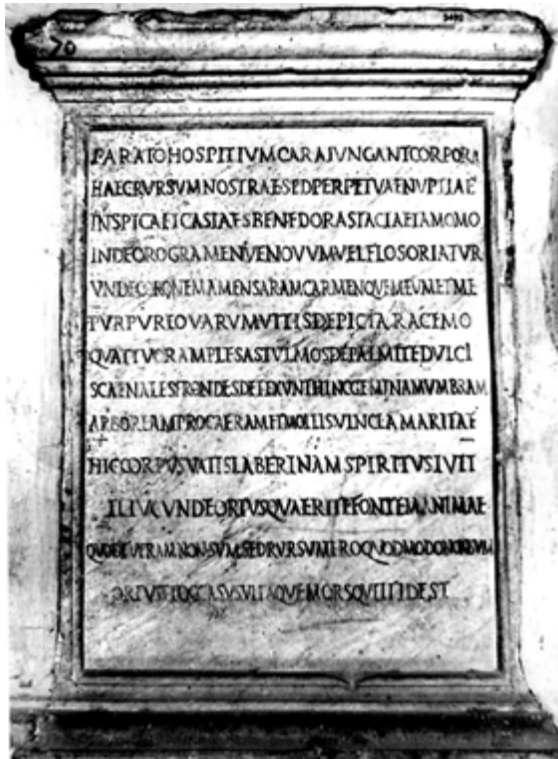 70
PARATOHOSPITIVMCARAIVNGANTCORPORA
HAECRVRSVMNOSTRAESEDPERPETVAENVPTIAE
INSPICAETCASIAESBENEDORASTACTAETAMOMO
INDEOROGRAMENVENOVVMVELFLOSORIATVR
VNDECORONEMAMENSARAMCARMENQVEMEVMETME
PVRPVREOVARVMVITISDEPICTARACEMO
QVATTVORAMPLEXASTVLMOSDEPALMITEDVLCI
SCAENALESFRONDESDETEXVNTHINCGEMINAMVMBRAM
ARBOREAMPROCAERAMETMOLLISVINCLAMARITAE
HICCORPVSVATISLABERINAMSPIRITVSIVIT
ILLVCVNDEORTVSQVAERITEFONTEMANIMAE
QVODFVERAMNONSVMSEDRVRSVMEROQVODMODONONSVM
ORTVSETOCCASVSVITAQVEMORSQVEITIDEST